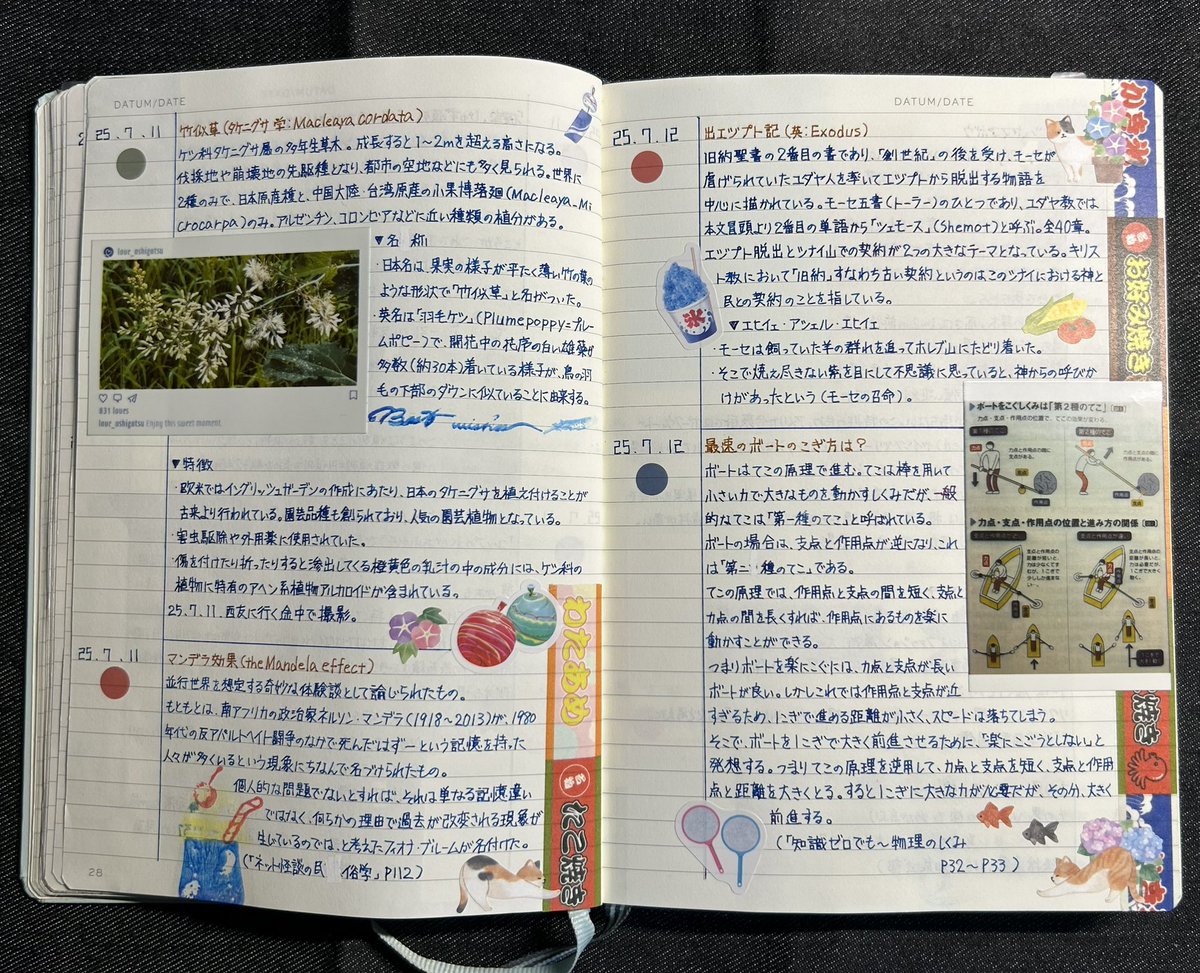 DATUM/DATE
25.7.11
竹似草(タケニグサ 学:Macleaya cordata)
ケシ科タケニグサ属の多年生草木。成長すると1〜2mを超える高さになる。
伐採地や崩壊地の先駆種となり、都市の空地などにも多く見られる。世界に
2種のみで、日本原産種と、中国大陸・台湾原産の小果博落廻(Macleaya Mi
crocarpa)のみ。アルゼンチン、コロンビアなどに近い種類の植分がある。
lour_oshigatsu
831 loves
lour_oshigatsu Enjoy this sweet moment.
▼名称
・日本名は、果実の様子が平たく薄い竹の葉の
ような形状で「竹似草」と名がついた。
・英名は「羽毛ケシ」(Plumepoppy=プルー
ムポピー)で、開花中の花序の白い雄蕊が
多数(約30本)着いている様子が、鳥の羽
毛の下部のダウンに似ていることに由来する。
▼特徴
・欧米ではイングリッシュガーデンの作成にあたり、日本のタケニグサを植え付けることが
古来より行われている。園芸品種も創られており、人気の園芸植物となっている。
・害虫駆除や外用薬に使用されていた。
・傷を付けたり折ったりすると滲出してくる橙黄色の乳汁の中の成分には、ケシ科の
植物に特有のアヘン系植物アルカロイドが含まれている。
25.7.11.西友に行く途中で撮影。
わたあめ
25.7.11
マンデラ効果(the Mandela effect)
並行世界を想定する奇妙な体験談として論じられたもの。
もともとは、南アフリカの政治家ネルソン・マンデラ(1918〜2013)が、1980
年代の反アパルトヘイト闘争のなかで死んだはずーという記憶を持った
人々が多くいるという現象にちなんで名づけられたもの。
個人的な問題でないとすれば、それは単なる記憶違い
ではなく、何らかの理由で過去が改変される現象が
生じているのでは、と考えたフィオナ・ブルームが名付けた。
(「ネット怪談の民俗学」P112)
名物
たこ焼き
28
DATUM/DATE
25.7.12
出エジプト記(英:Exodus)
旧約聖書の2番目の書であり、「創世紀」の後を受け、モーセが
虐げられていたユダヤ人を率いてエジプトから脱出する物語を
中心に描かれている。モーセ五書(トーラー)のひとつであり、ユダヤ教では
本文冒頭より2番目の単語から「シェモース」(Shemot)と呼ぶ。全40章。
エジプト脱出とシナイ山での契約が2つの大きなテーマとなっている。キリス
ト教において「旧約」すなわち古い契約というのはこのシナイにおける神と
民との契約のことを指している。
▼エヒイェ・アシェル・エヒイェ
・モーセは飼っていた羊の群れを追ってホレブ山にたどり着いた。
・そこで燃え尽きない柴を目にして不思議に思っていると、神からの呼びか
けがあったという(モーセの召命)。
氷
かき氷
名物
お好み焼き
25.7.12
最速のボートのこぎ方は?
ボートはてこの原理で進む。てこは棒を用いて
小さい力で大きなものを動かすしくみだが、一般
的なてこは「第一種のてこ」と呼ばれている。
ボートの場合は、支点と作用点が逆になり、これ
は「第二種のてこ」である。
てこの原理では、作用点と支点の間を短く、支点と
力点の間を長くすれば、作用点にあるものを楽に
動かすことができる。
つまりボートを楽にこぐには、力点と支点が長い
ボートが良い。しかしこれでは作用点と支点が近
すぎるため、1こぎで進める距離が小さく、スピードは落ちてしまう。
そこで、ボートを1こぎで大きく前進させるために、「楽にこごうとしない」と
発想する。つまりてこの原理を逆用して、力点と支点を短く、支点と作用
点と距離を大きくとる。すると1こぎに大きな力が必要だが、その分、大きく
前進する。
(「知識ゼロでも〜物理のしくみ
P32〜P33)
▶ボートをこぐしくみは「第2種のてこ」
力点・支点・作用点の位置で、てこの効果が変わる。
第1種のてこ
第2種のてこ
▶力点・支点・作用点の位置と進み方の関係
焼き